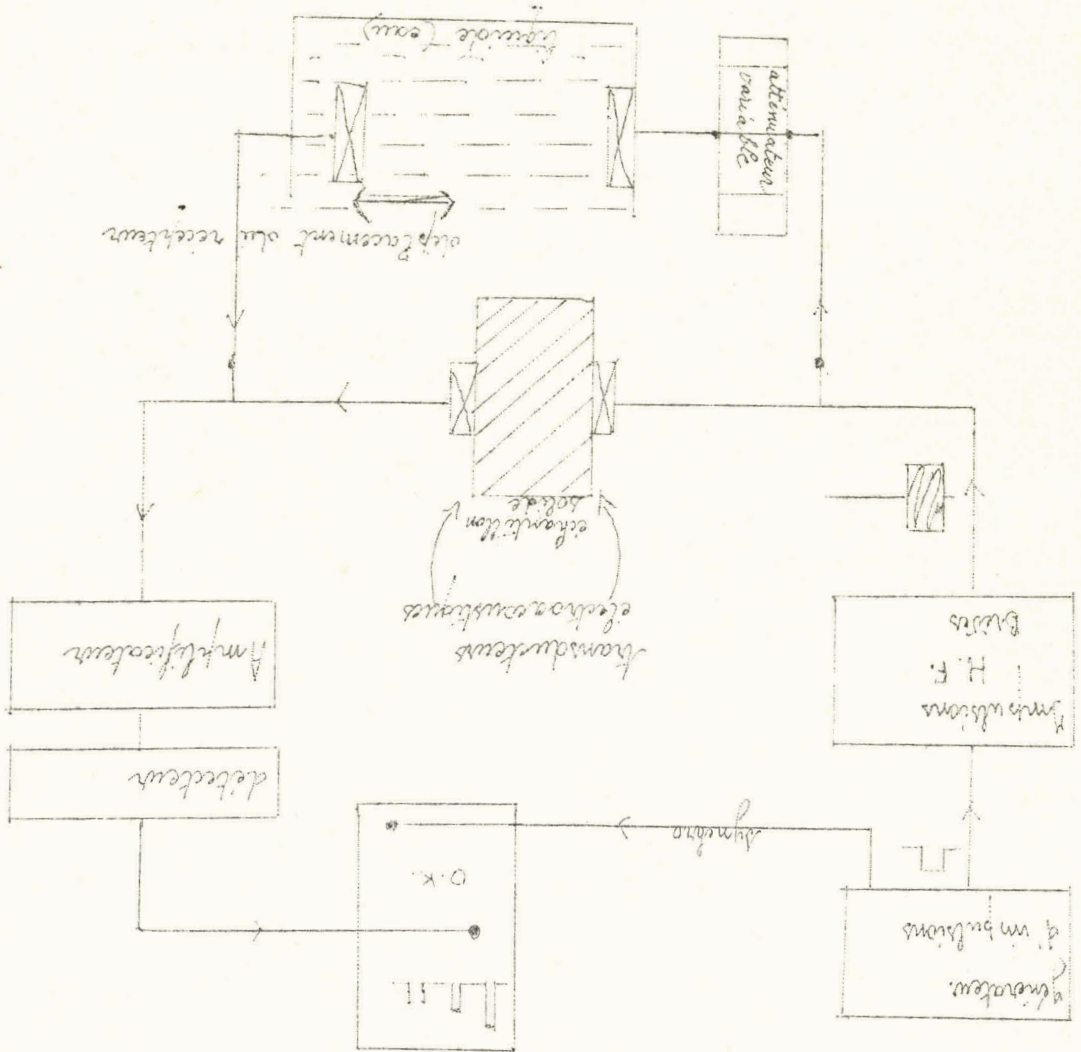 générateur
d'impulsions
O.K.
synchro
Impulsions
H.F.
Brèves
détecteur
Amplificateur
transducteurs
électroacoustiques
échantillon
solide
déplacement du récepteur
atténuateur
variable
liquide (eau)